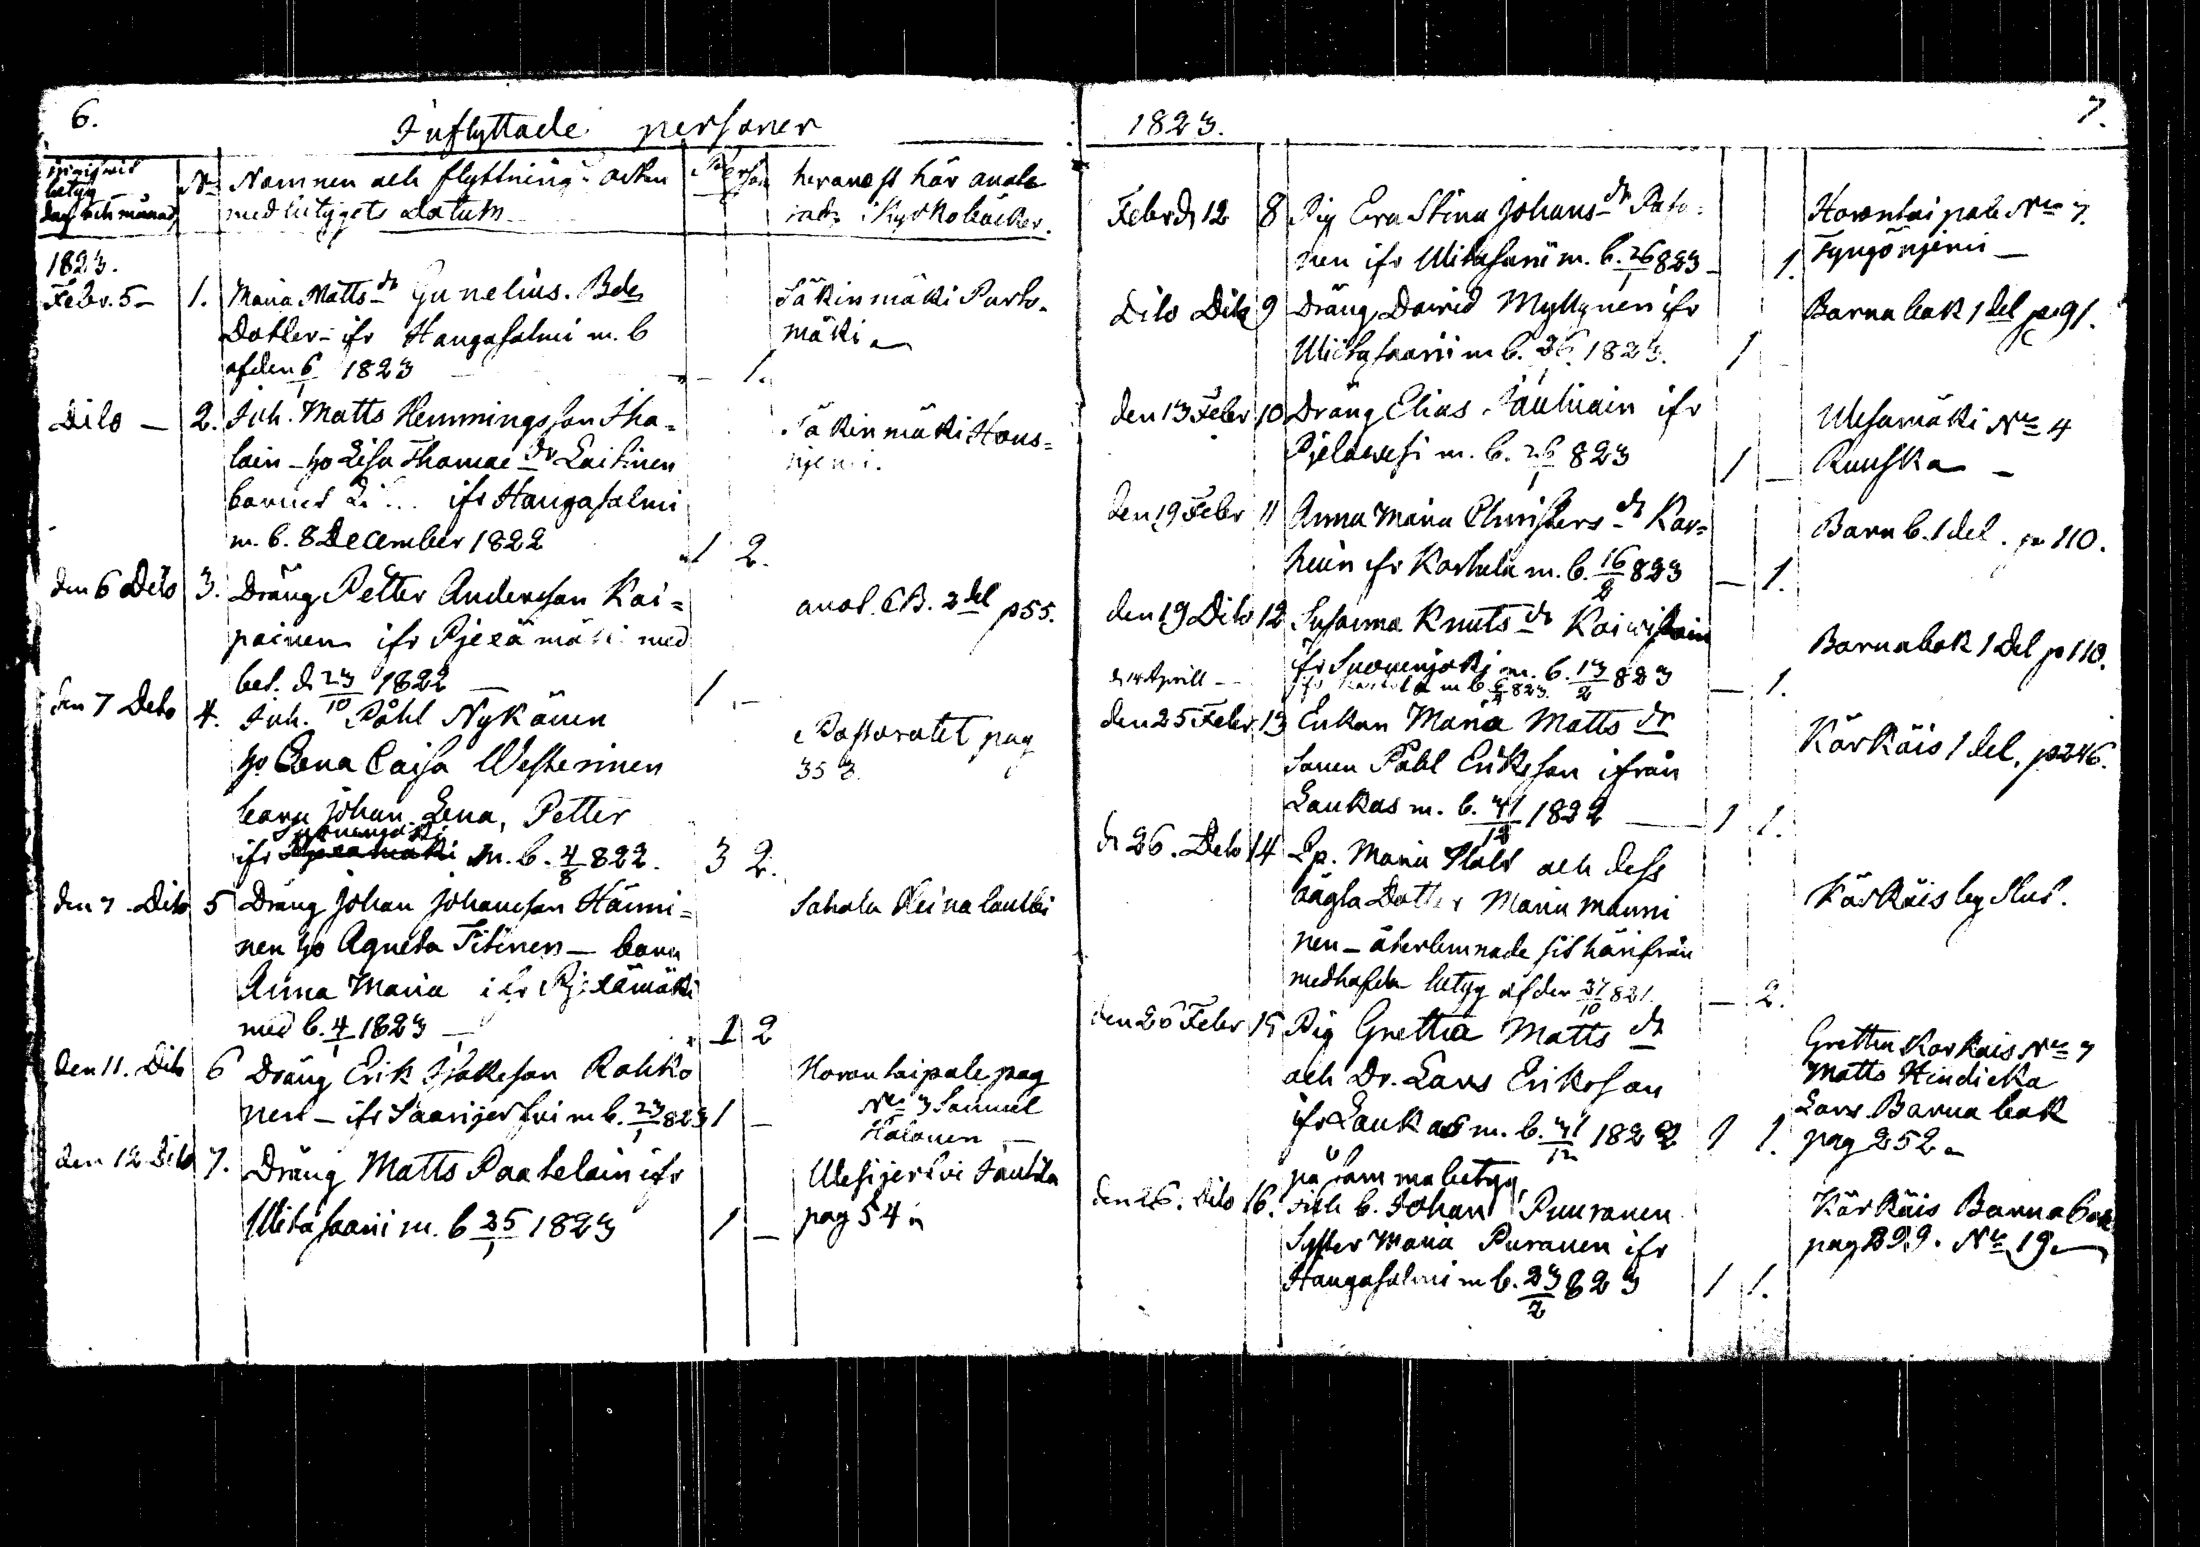 6.
Inflyttade personer
betyg
dag och månad
No Namnen och flyttnings orten
med betygets datum
Person
hvarest här antek
nade i Kyrkobäcker.
1823.
Febr. 5 – 1. Maria Matts dr Gunelius. Bde
Dotler – ifr Hangasalmi m. b
af den 6/1 1823 – 1.
Säkinmäki Purto-
mäki
Dito – 2. Inh. Matts Hemmingsson Tha=
lain – ho Lisa Thomae dr Laitinen
barnet ifr Hangasalmi
m. b. 8 December 1822 1 2.
Säkinmäki Hans=
njemi.
den 6 Dito 3. Dräng Petter Andersson Kai=
painen ifr Pjexämäki med
bet. d. 23/10 1822 – 1 –
anot. C B. 2 del p 55.
den 7 Dito 4. Inh. Påhl Nykänen
ho Lena Caisa Westerinen
barn Johan. Lena, Petter
Suonenjoki
ifr Pjexämäki m. b. 4/8 822. 3 2.
Pastoratet pag
353
den 7 – Dito 5 Dräng Johan Johansson Hänni=
nen ho Agneta Titinen – barn
Anna Maria ifr Pjexämäki
med b. 4/1 1823 – 1 2
Sahala Heinalanbi
den 11. Dito 6 Dräng Erik Isaksson Rohko
nen – ifr Saarijerfvi m b. 23/1 823 1 –
Horontaipale pag
No 3 Samuel
Halonen –
den 12 Dito 7. Dräng Matts Paatelain ifr
Uitasaari m. b 25/1 1823 1 –
Wesijerfvi Tautila
pag 54
1823.
7.
Febr d 12 8 Pig Eva Stina Johans dr Pato=
nen ifr Witasari m. b. 26/1 823 – 1.
Horontaipale No 7.
Tyngönjemi –
Dito Dito 9 Dräng David Myllynen ifr
Witasaari m b. 26/1 1823. 1
Barnabok 1 del p 91.
den 13 Febr 10 Dräng Elias Pauliain ifr
Pjelawesi m. b. 26/1 823 1 –
Wesamäki No 4
Ruuska –
den 19 Febr 11 Anna Maria Christers dr Kar=
huin ifr Karttula m. b. 16/2 823 – 1.
Barn b. 1 del. p 110.
den 19 Dito 12 Susanna Knuts dr Koivistoin
ifr Suonenjoki m. b. 13/2 823 – 1.
d. 14 Aprill – ifr Karttula m b 6/4 823.
Barnabok 1 Del p 110.
den 25 Febr. 13 Enkan Maria Matts dr
Sonen Påhl Eriksson ifrån
Laukas m. b. 31/12 1822 – 1 1.
Kärkäis 1 del, p 246.
d. 26. Dito 14 Lp. Maria Stolt och dess
oägta Dotter Maria Manni
nen – återlemnade sit härifrån
medhafda betyg af den 31/10 821. – 2.
Kärkäis by Slut.
den 26 Febr 15 Pig Gretha Matts dr
och Dr. Lars Eriksson
ifr Laukas m. b. 31/12 1822 1 1.
på samma betyg
Gretha Karkais No 7
Matts Hindicka
Lars Barnabok
pag 252
den 26. Dito 16. inh b. Johan Puuranen
Syster Maria Puranen ifr
Hangasalmi m b. 23/2 823 1 1.
Kärkäis Barnabok
pag 299. No 19